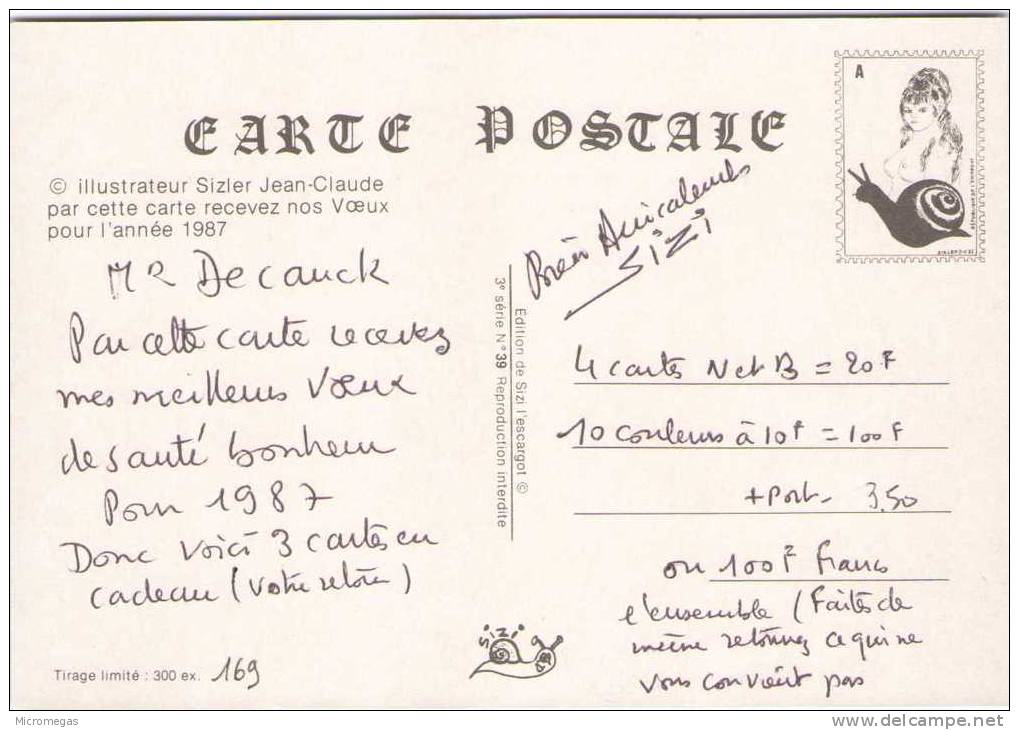 CARTE POSTALE
© illustrateur Sizler Jean-Claude
par cette carte recevez nos Vœux
pour l'année 1987
Mr Decauck
Par cette carte recevez
mes meilleurs Vœux
de santé bonheur
Pour 1987
Donc voici 3 cartes en
cadeau (votre retour)
Tirage limité : 300 ex. 169
Edition de Sizi l'escargot ©
3e série N° 39 Reproduction interdite
Sizi
A
Bien Amicalement
SiZi
4 cartes N et B = 20F
10 couleurs à 10F = 100F
+ Port - 3,50
ou 100F Francs
l'ensemble (Faites de
même retournez ce qui ne
vous convient pas
Micromegas
www.delcampe.net